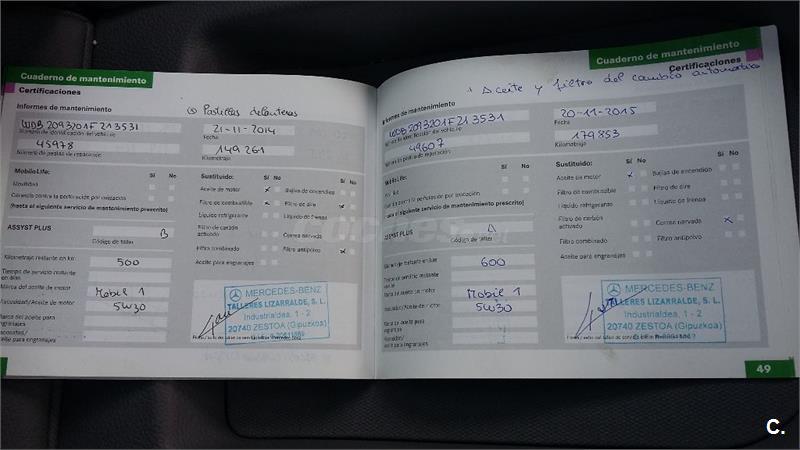 Cuaderno de mantenimiento
Certificaciones
Informes de mantenimiento
Pastillas delanteras
WDB2093201F213531
Número de identificación del vehículo
21-11-2014
Fecha
45978
Número de pedido de reparación
149261
Kilometraje
MobiloLife:
Sí No
Movilidad
Garantía contra la perforación por oxidación
(hasta el siguiente servicio de mantenimiento prescrito)
Sustituido:
Sí No
Sí No
Aceite de motor
Bujías de encendido
Filtro de combustible
Filtro de aire
Líquido refrigerante
Líquido de frenos
Filtro de carbón activado
Correa nervada
Filtro combinado
Filtro antipolvo
Aceite para engranajes
ASSYST PLUS
B
Código de taller
Kilometraje restante en km
500
Tiempo de servicio restante en días
Marca del aceite de motor
Mobil 1
Viscosidad/Aceite de motor
5W30
Marca del aceite para engranajes
Viscosidad/
aceite para engranajes
MERCEDES-BENZ
TALLERES LIZARRALDE, S. L.
Industrialdea, 1 - 2
20740 ZESTOA (Gipuzkoa)
Cuaderno de mantenimiento
Certificaciones
+ Aceite y filtro del cambio automatico
Informes de mantenimiento
WDB2093201F213531
20-11-2015
Fecha
49607
179853
Kilometraje
MobiloLife:
Sí No
(hasta el siguiente servicio de mantenimiento prescrito)
Sustituido:
Sí No
Sí No
Aceite de motor
Bujías de encendido
Filtro de combustible
Filtro de aire
Líquido refrigerante
Líquido de frenos
Filtro de carbón activado
Correa nervada
Filtro combinado
Filtro antipolvo
Aceite para engranajes
ASSYST PLUS
A
Código de taller
600
Marca del aceite de motor
Mobil 1
Viscosidad/Aceite de motor
5W30
Marca del aceite para engranajes
Viscosidad/
aceite para engranajes
MERCEDES-BENZ
TALLERES LIZARRALDE, S. L.
Industrialdea, 1 - 2
20740 ZESTOA (Gipuzkoa)
49
C.